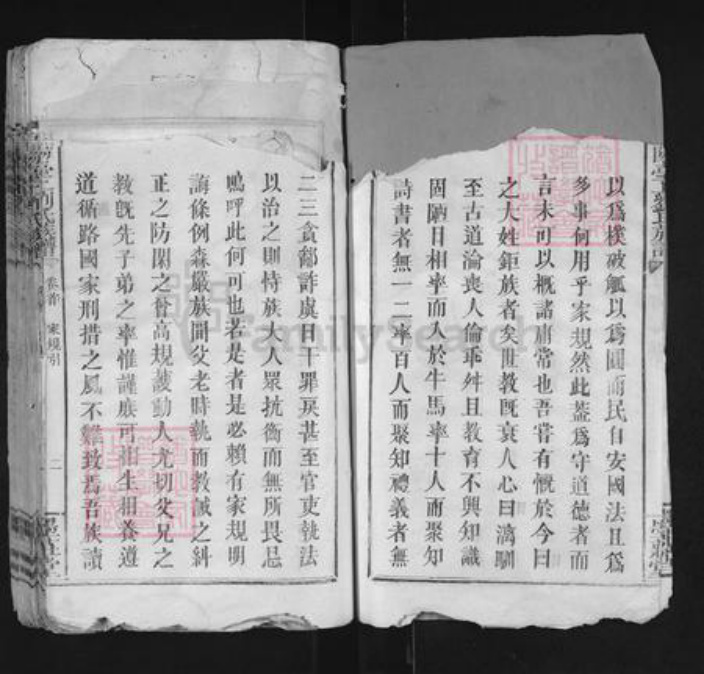 以爲樸破觚以爲圜而民自安國法且爲
多事何用乎家規然此蓋爲守道德者而
言未可以概諸庸常也吾嘗有慨於今日
之大姓鉅族者矣世教旣衰人心日漓馴
至古道淪喪人倫乖舛且教育不興知識
固陋日相率而入於牛馬率十人而聚知
詩書者無一二率百人而聚知禮義者無
二三貪鄙詐虞日干罪戾甚至官吏執法
以治之則恃族大人眾抗衡而無所畏忌
嗚呼此何可也若是者是必賴有家規明
誨條例森嚴族間父老時執而教誡之糾
正之防閑之
高規護動人尤切父兄之
教旣先子弟之率惟謹庶可相生相養遵
道循路國家刑措之風不難致焉吾族讀
卷首 家規引
二
FamilySearch